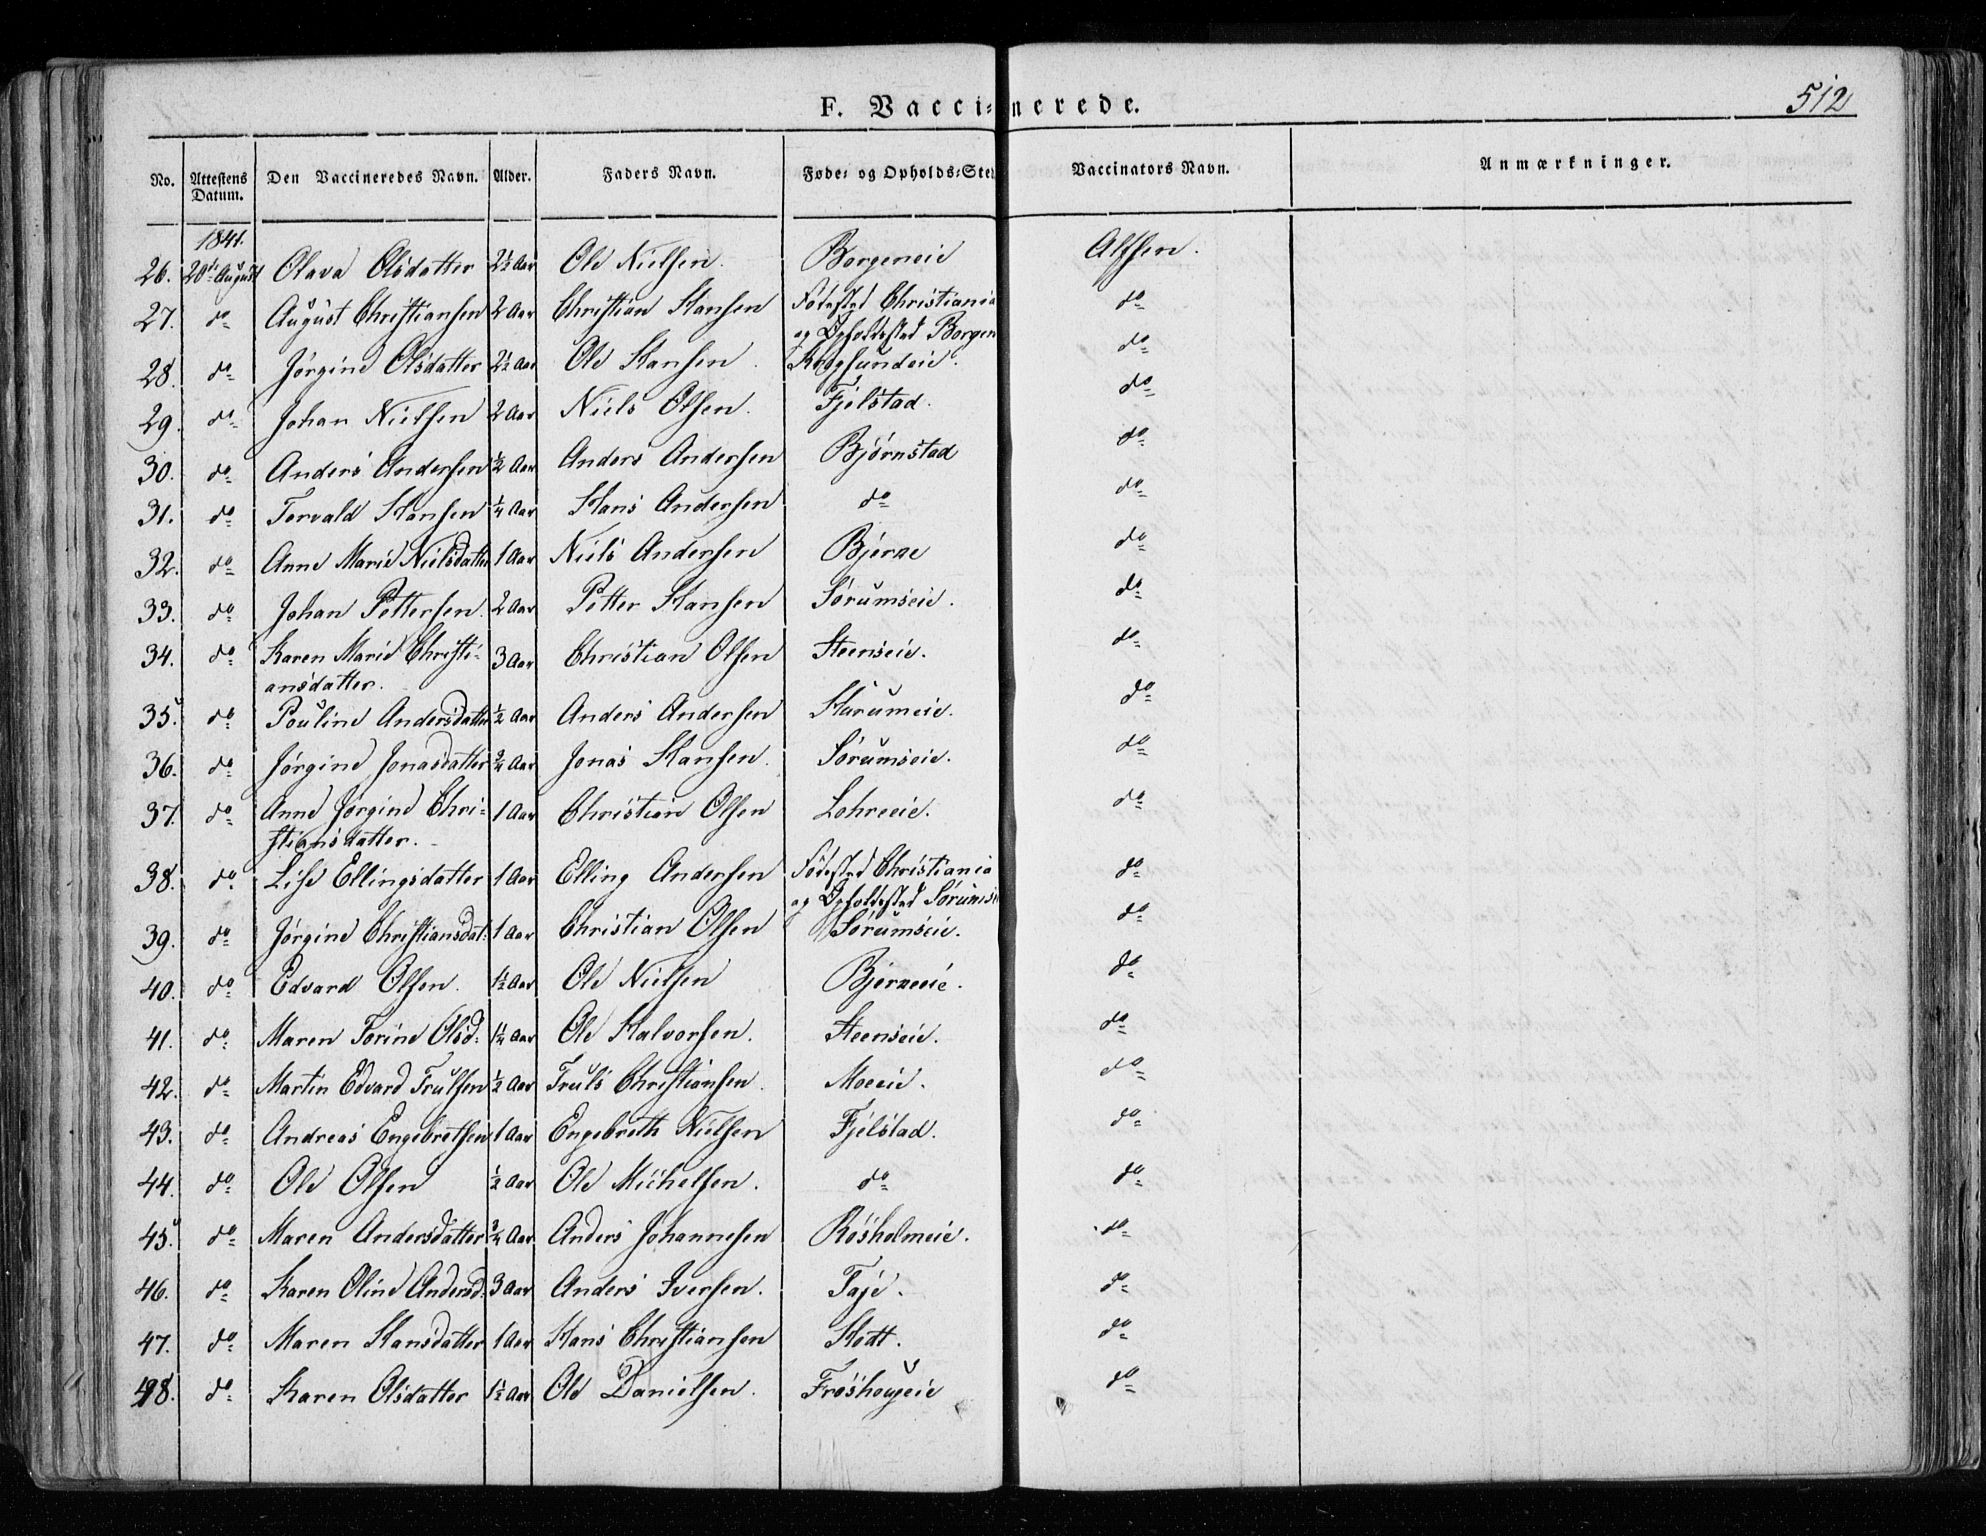 512
F. Vaccinerede.
No. Attestens Datum. Den Vaccineredes Navn. Alder. Faders Navn. Føde- og Opholds-Sted Vaccinators Navn. Anmærkninger.
1841.
26. 20de August Olava Olsdatter 2½ Aar Ole Nielsen. Borgeneie Alfsen.
27. do August Christiansen 2 Aar Christian Hansen Fødested Christiania do
og Opholdssted Borgen
28. do Jørgine Olsdatter 2½ Aar Ole Hansen. do
29. do Johan Nielsen 2 Aar Niels Olsen. Fjelstad. do
30. do Anders Andersen ½ Aar Anders Andersen Bjørnstad do
31. do Torvald Hansen ¼ Aar Hans Andersen do do
32. do Anne Marie Nielsdatter 1 Aar Niels Andersen Bjerke do
33. do Johan Pettersen. 2 Aar Petter Hansen Sørumseie. do
34. do Karen Marie Christi- 3 Aar Christian Olsen Steenseie. do
ansdatter.
35. do Pouline Andersdatter ½ Aar Anders Andersen do
36. do Jørgine Jonasdatter ¾ Aar Jonas Hansen. Sørumseie. do
37. do Anne Jørgine Chri- 1 Aar Christian Olsen Lohreeie. do
stiansdatter.
38. do Lise Ellingsdatter 1 Aar Elling Andersen Fødested Christiania do
og Opholdssted Sørumsei
39. do Jørgine Christiansdat: 1 Aar Christian Olsen Sørumseie. do
40. do Edvard Olsen. 1½ Aar Ole Nielsen Bjerkeeie. do
41. do Maren Torine Olsd: 1¼ Aar Ole Halvorsen. Steenseie. do
42. do Martin Edvard Trulsen ½ Aar Truls Christiansen. Moeeie. do
43. do Andreas Engebretsen 1 Aar Engebreth Nielsen Fjelstad. do
44. do Ole Olsen ½ Aar Ole Michelsen. do do
45. do Maren Andersdatter ¾ Aar Anders Johannesen Rosholmeie. do
46. do Karen Oline Andersd. 3 Aar Anders Iversen. Faje. do
47. do Maren Hansdatter 1 Aar Hans Christiansen do
48. do Karen Olsdatter 1½ Aar Ole Danielsen. Frøshougeie do